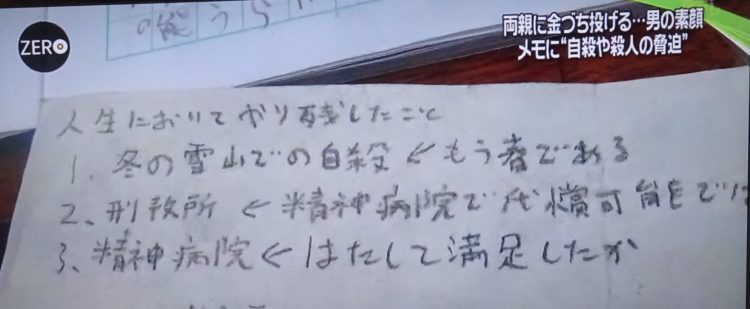 ZERO
両親に金づち投げる…男の素顔
メモに“自殺や殺人の脅迫”
人生においてやり残したこと
1、冬の雪山での自殺←もう者である
2、刑務所←精神病院で代償可能で
3、精神病院←はたして満足したか